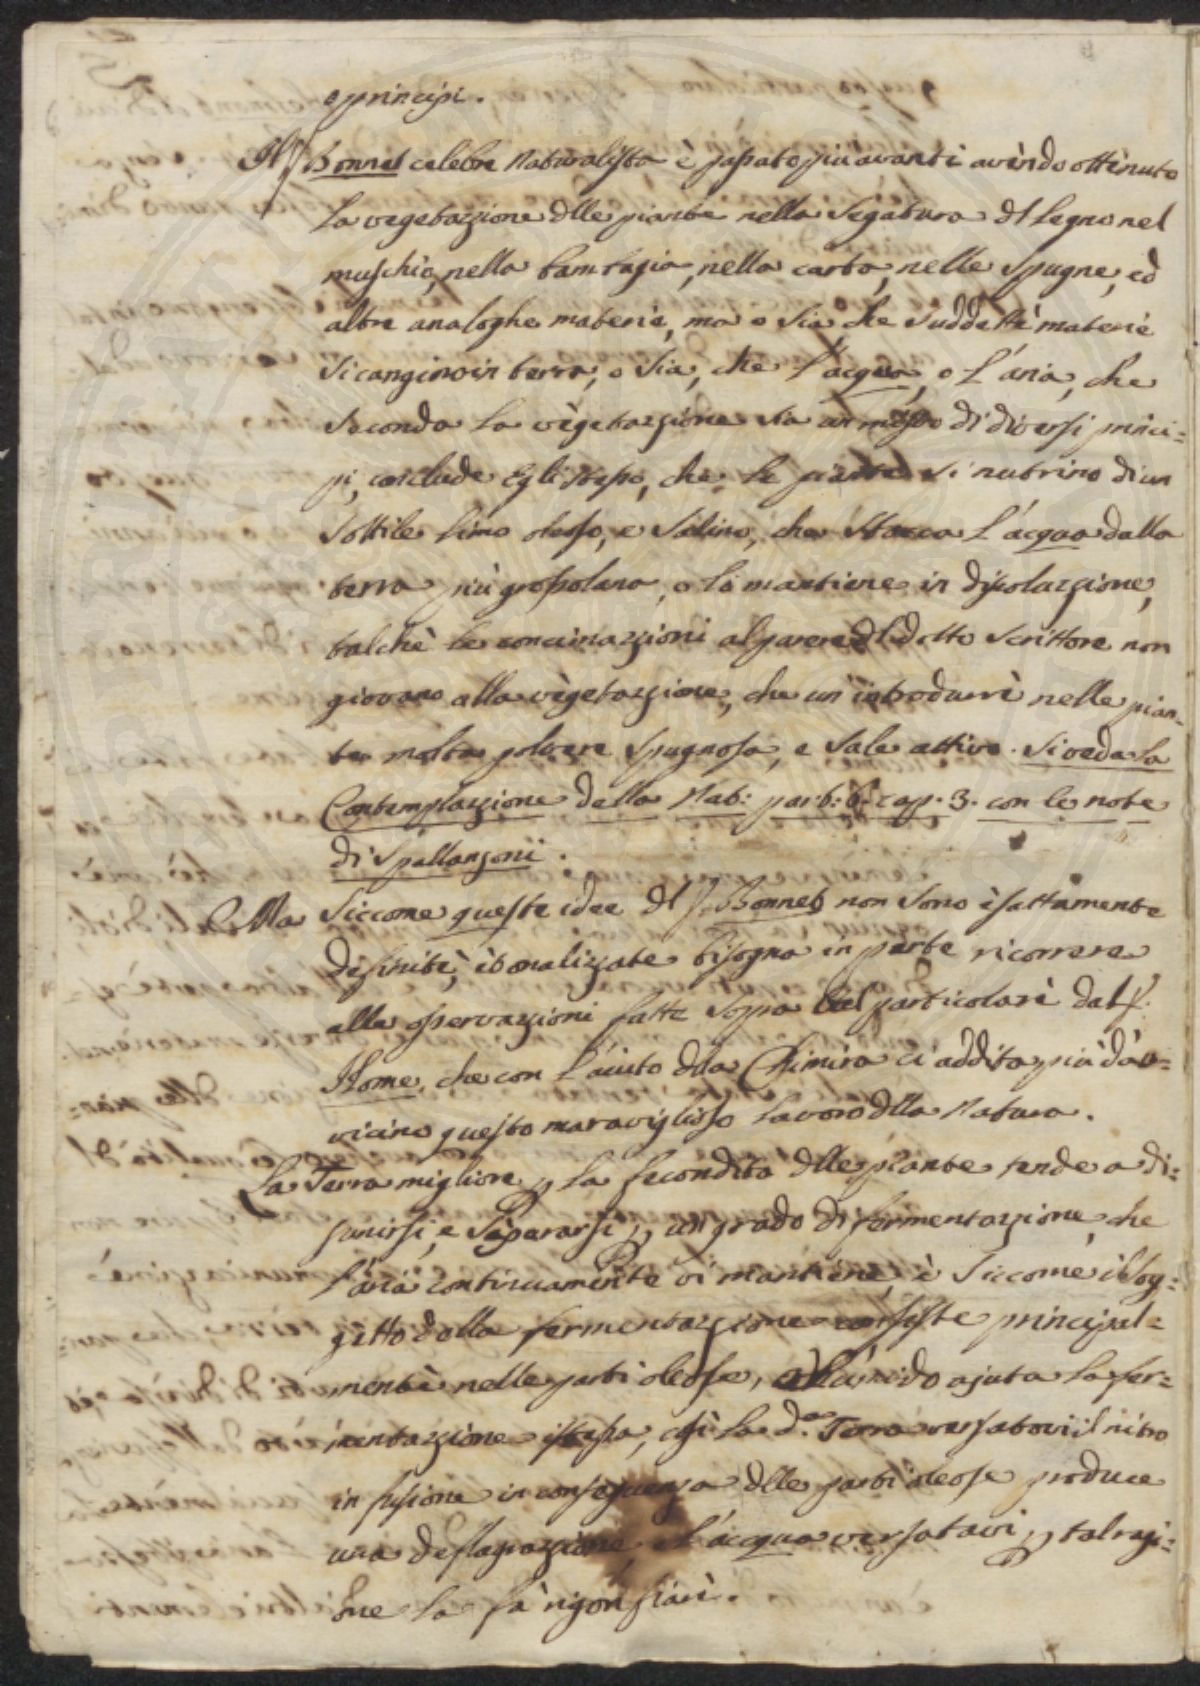 principj.
Il S. Bonnet celebre Naturalista è passato più avanti avendo ottenuto
la vegetazzione dlle piante nella Segatura dl legno nel
muschio, nella bambagia, nella carta, nelle Spugne, ed
altre analoghe materie, ma o sia che suddette materie
si cangino in terra, o sia, che l'acqua, o l'aria, che
seconda la vegetazzione sia un misto di diversi princi=
pj, conclude Egli stesso, che le piante si nutrino di un
sottile limo oleoso, e salino, che stacca l'acqua dalla
terra più grossolana, o lo mantiene in dissoluzzione,
talchè le concimazzioni al parere dl dotto scrittore non
giovano alla vegetazzione, che un introdurre nelle pian-
te molta polvere spugnosa, e sale attivo. Si veda la
Contemplazzione della Nat: part: 6. cap. 3. con le note
di Spallanzoni.
Siccome queste idee dl S. Bonnet non sono esattamente
definite, ed analizzate bisogna in parte ricorrere
alle osservazzioni fatte sopra tal particolare dal S.
Home, che con l'aiuto dlla Chimica ci addita più d'av=
vicino questo maraviglioso lavoro dlla Natura.
La Terra migliore p la fecondità dlle piante tende a di=
sunirsi, e separarsi p un grado di fermentazzione, che
l'aria continuamente vi mantiene, e siccome il sog=
getto dalla fermentazzione consiste principal=
mente nelle parti oleose, l'acido ajuta la fer=
mentazzione istessa, così la d.a Terra versatovi il nitro
in fusione in conseguenza dlle parti oleose produce
una deflagrazzione, e l'acqua versatavi p tal ragi=
one la fà rigonfiare.